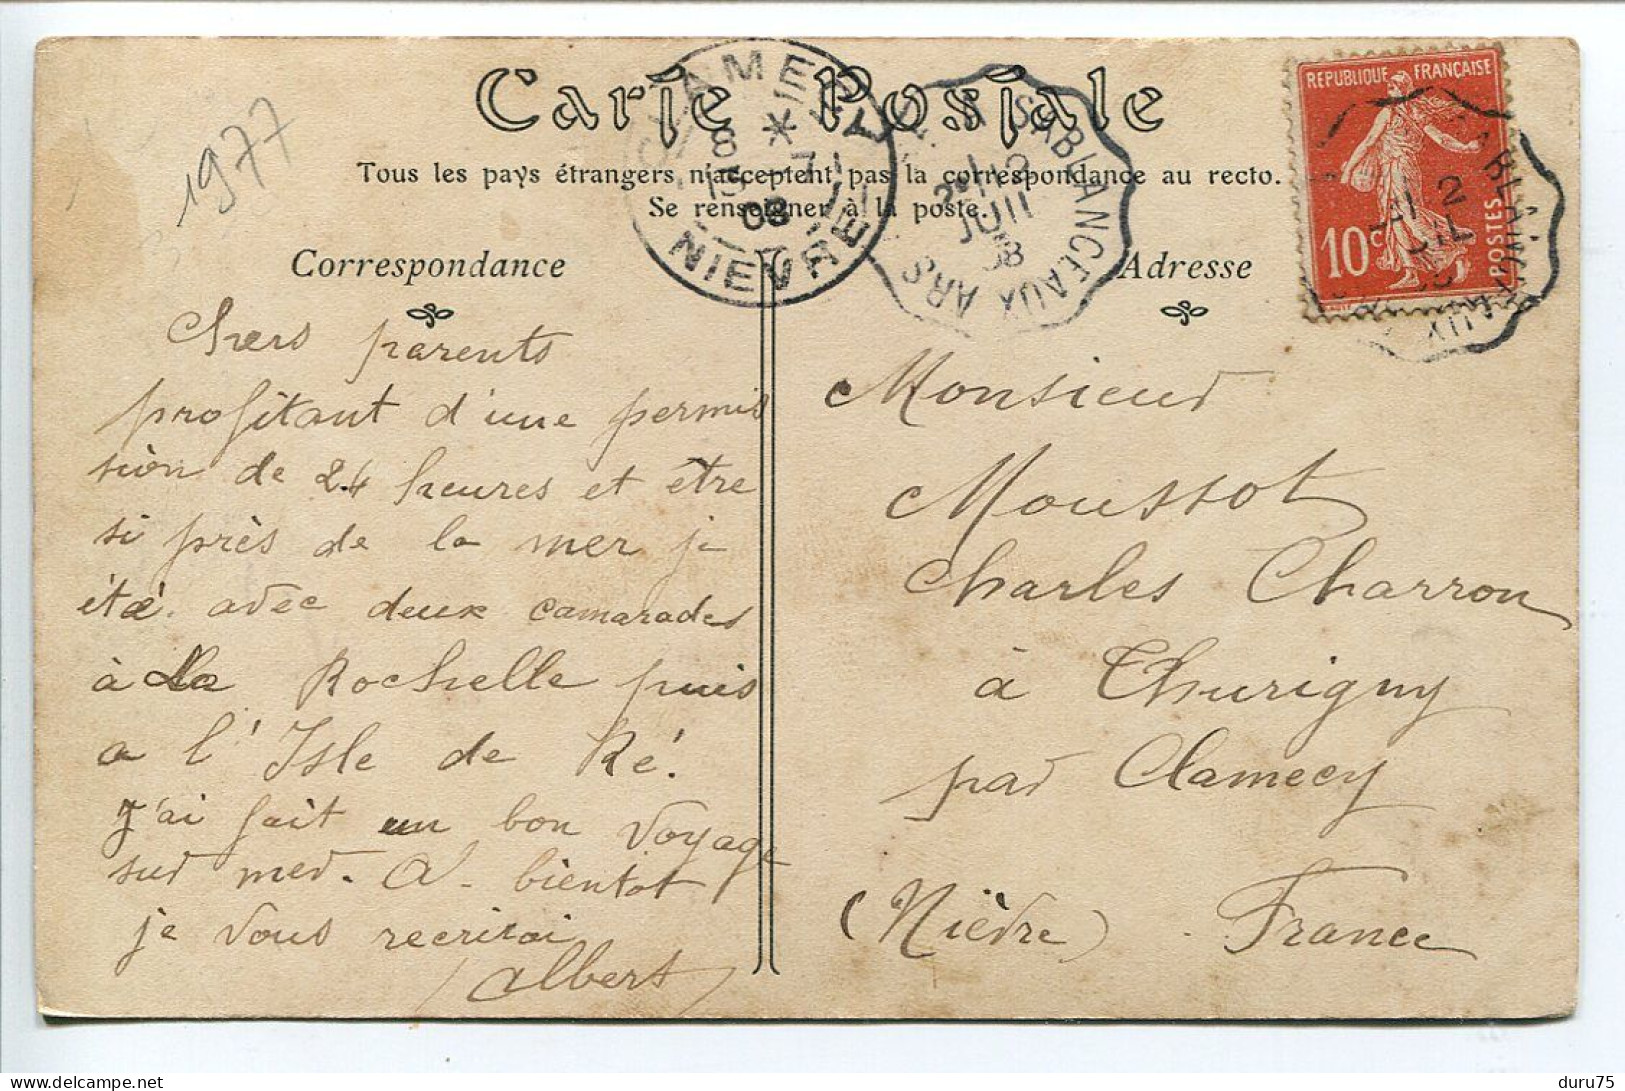 Carte Postale
Tous les pays étrangers n'acceptent pas la correspondance au recto.
Se renseigner à la poste.
1977
CLAMECY
8 * 
15 -7
08
NIEVRE
ARS SABLANCEAUX
2
JUIL
08
REPUBLIQUE FRANÇAISE
10c
POSTES
Correspondance
Chers parents
profitant d'une permis
sion de 24 heures et etre
si près de la mer je
été avec deux camarades
à La Rochelle puis
a l'Isle de Ré.
J'ai fait un bon voyage
sur mer. A. bientot
je vous recrirai
Albert
Adresse
Monsieur
Moussot
Charles Charron
à Thurigny
par Clamecy
(Nièvre) . France
duru75